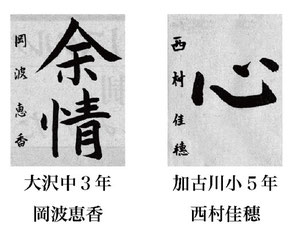 余情
岡波恵香
大沢中3年
岡波恵香
心
西村佳穂
加古川小5年
西村佳穗